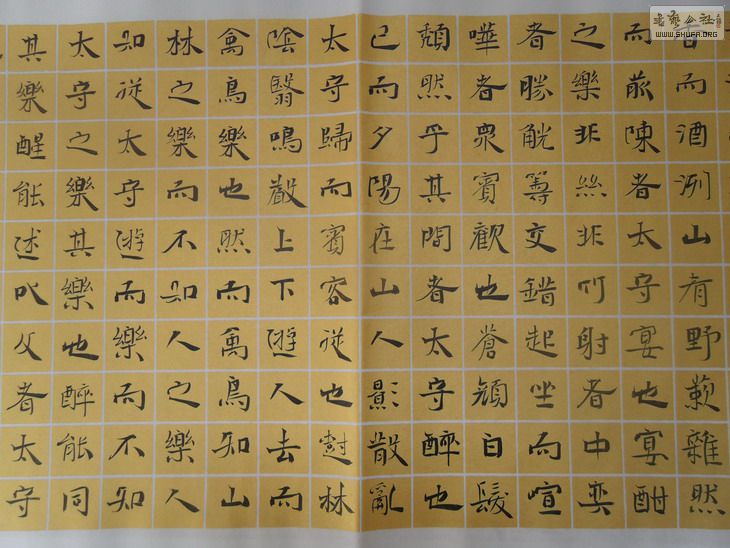 書藝公社
WWW.SHUFA.ORG
而酒洌山肴野蔌雜然
而前陳者太守宴也宴酣
之樂非絲非竹射者中奕
者勝觥籌交錯起坐而喧
嘩者衆賓歡也蒼顔白髮
頹然乎其間者太守醉也
已而夕陽在山人影散亂
太守歸而賓客從也樹林
陰翳鳴聲上下遊人去而
禽鳥樂也然而禽鳥知山
林之樂而不知人之樂人
知從太守遊而樂而不知
太守之樂其樂也醉能同
其樂醒能述以文者太守